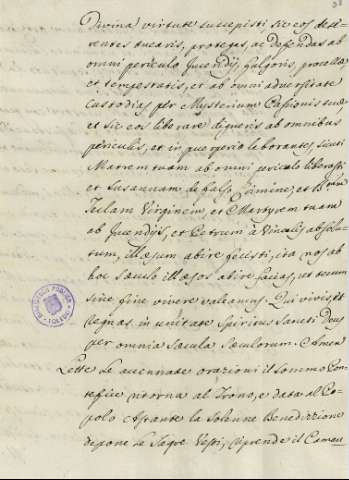 Divina virtute suscepisti, sic eos defe-
rentes tuearis, protegas, ac defendas ab
omni periculo incendij, fulgoris, procellæ
et tempestatis, et ab omni adversitate
custodias per Mysterium Passionis tuæ
et sic eos liberare digneris ab omnibus
periculis, et in puerperio laborantes, sicuti
Matrem tuam ab omni periculo liberasti
et Susannam de falso crimine, et Beatam
Teclam Virginem, et Martyrem tuam
ab incendijs, et Petrum à Vinculis absolu-
tum, illæsum abire fecisti, ita nos ab
hoc sæculo illæsos abire facias, et tecum
sine fine vivere valeamus. Qui vivis, et
Regnas in unitate Spiritus Sancti Deus
per omnia Sæcula Sæculorum. Amen
Lette le accennate orazioni il Sommo Pon-
tefice ritorna al Trono, e data al Po-
polo Astante la Solenne Benedizzione
depone le Sagre Vesti, riprende il